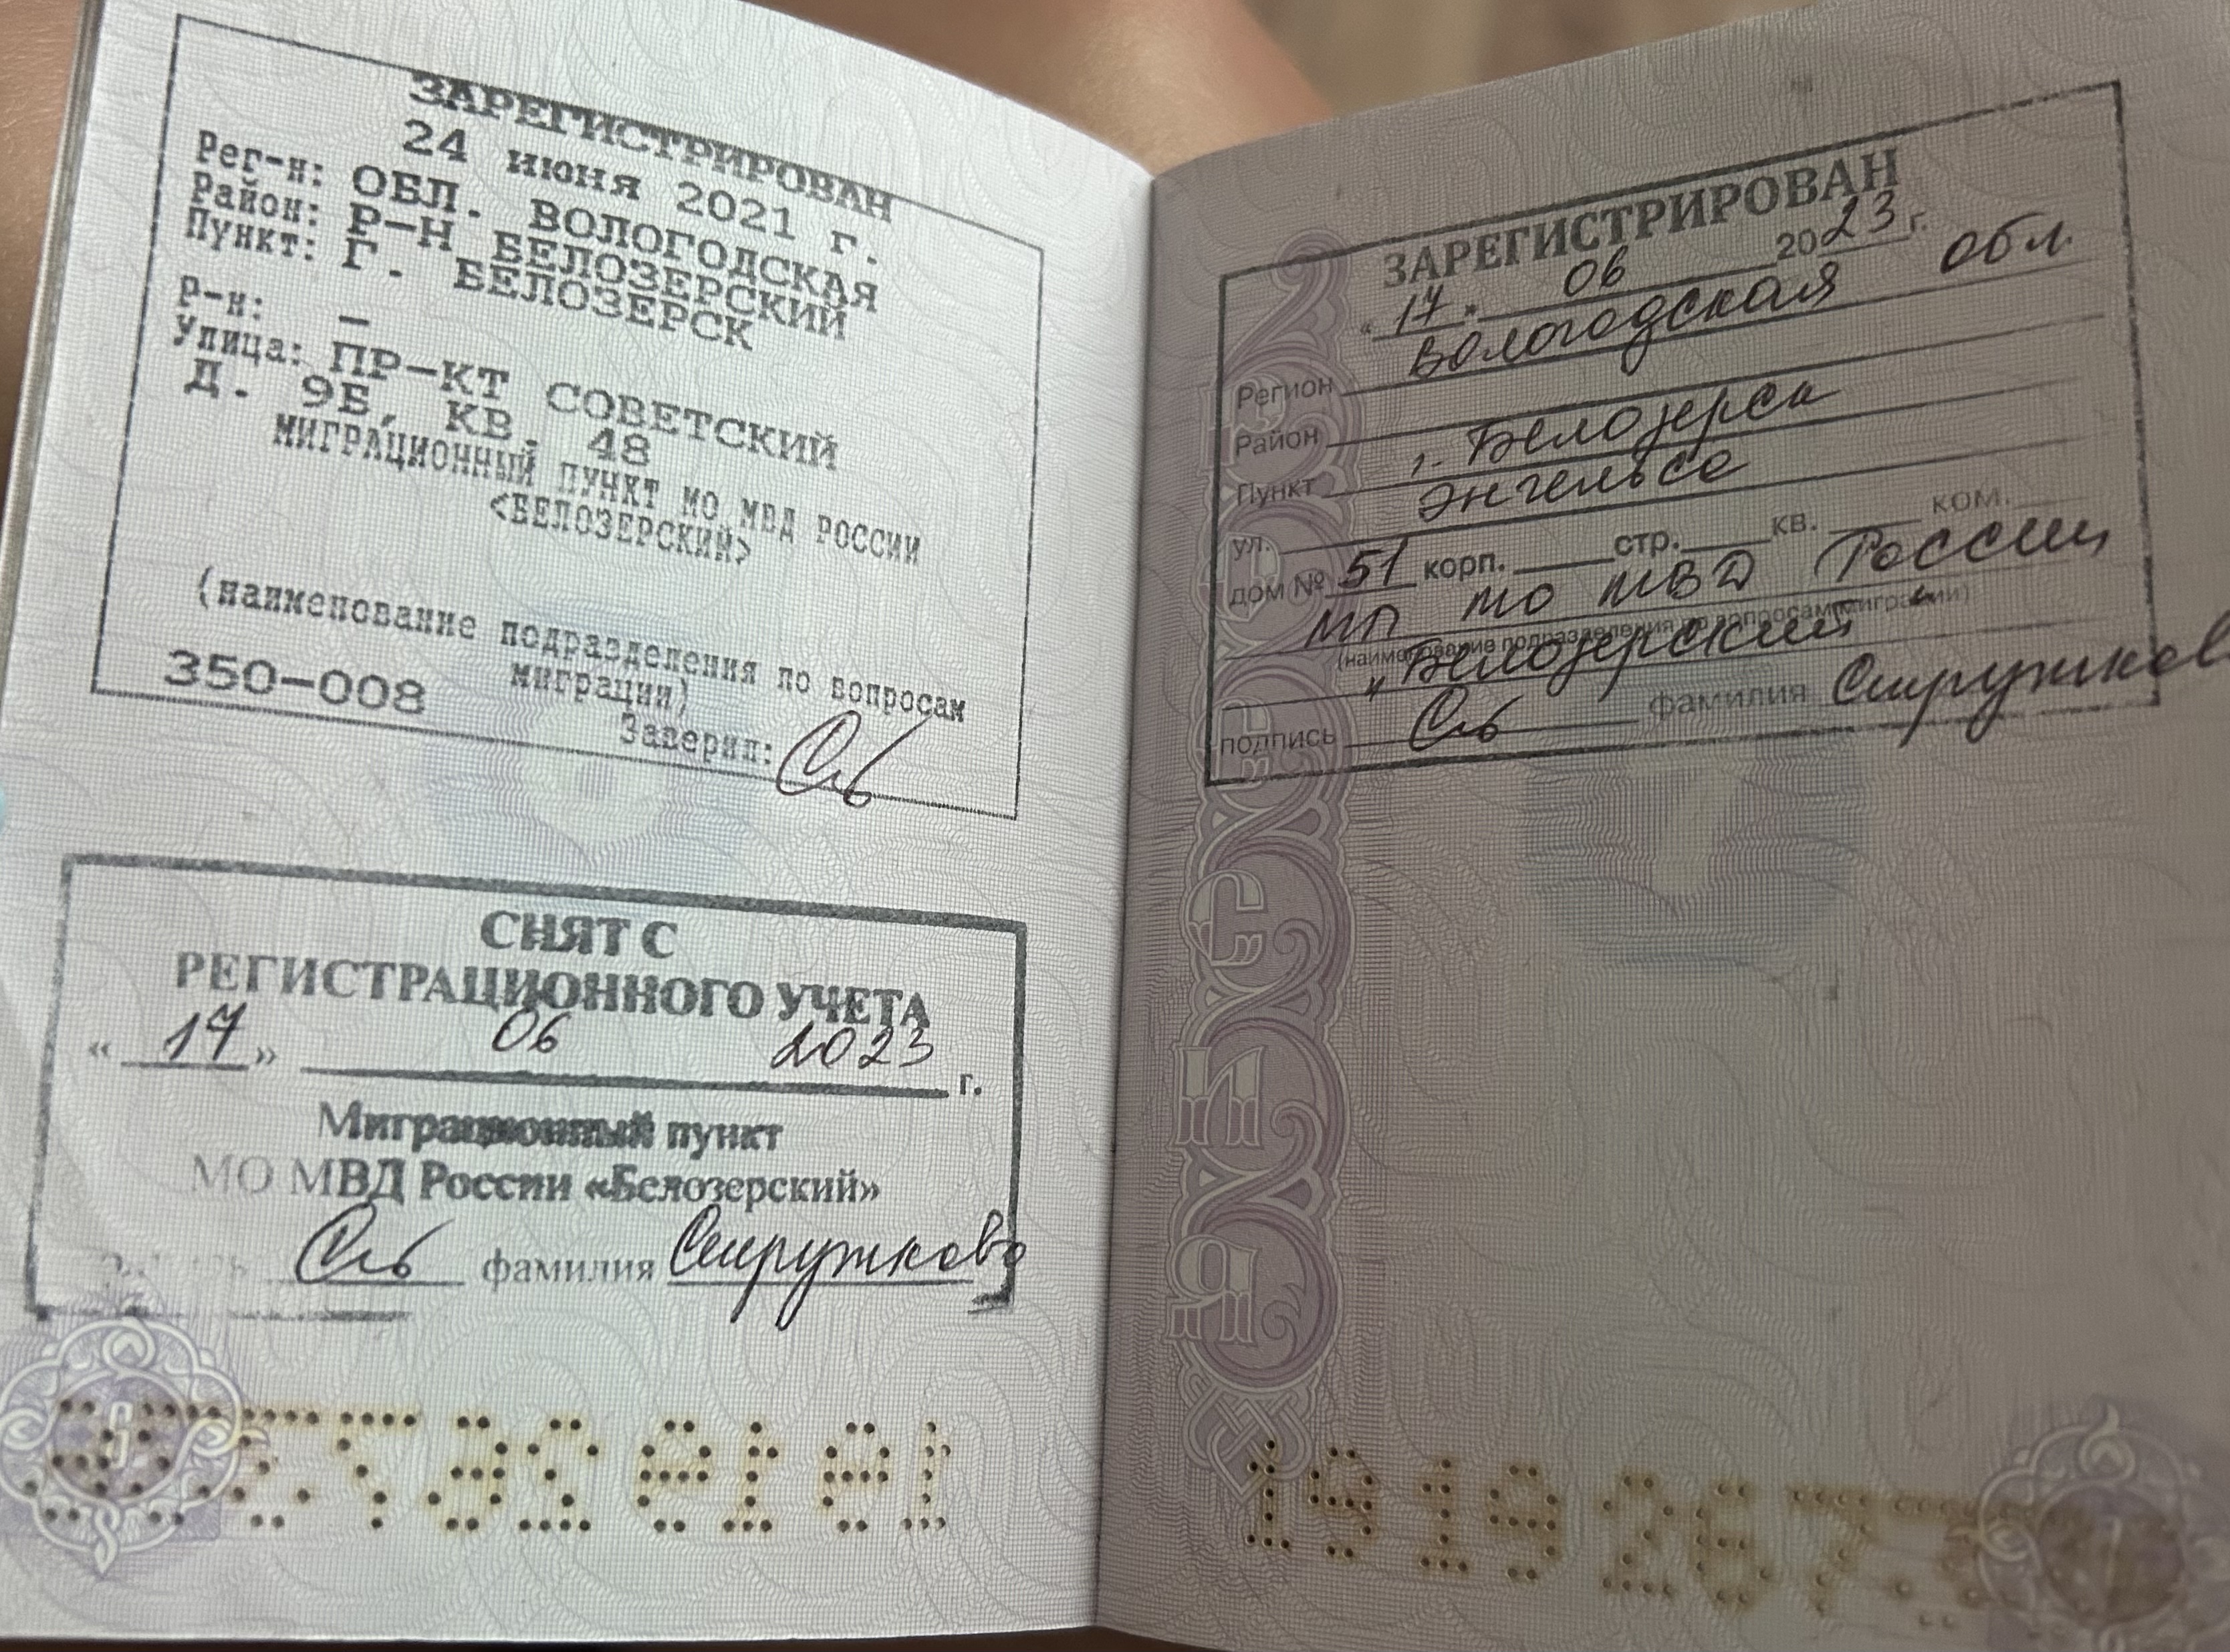 ЗАРЕГИСТРИРОВАН
24 июня 2021 г.
Рег-н: ОБЛ. ВОЛОГОДСКАЯ
Район: Р-Н БЕЛОЗЕРСКИЙ
Пункт: Г. БЕЛОЗЕРСК
Р-н: –
Улица: ПР-КТ СОВЕТСКИЙ
Д. 9Б, КВ. 48
МИГРАЦИОННЫЙ ПУНКТ МО МВД РОССИИ
<БЕЛОЗЕРСКИЙ>
(наименование подразделения по вопросам
миграции)
350-008
Заверил:
СНЯТ С
РЕГИСТРАЦИОННОГО УЧЕТА
« 17 » 06 2023 г.
Миграционный пункт
МО МВД России «Белозерский»
фамилия
ЗАРЕГИСТРИРОВАН
« 17 » 06 2023 г.
Регион Вологодская обл.
Район
Пункт г. Белозерск
ул. Энгельса
дом № 51 корп. стр. кв. ком.
МП МО МВД России
(наименование подразделения по вопросам миграции)
"Белозерский"
подпись фамилия
РОССИЯ
1919267